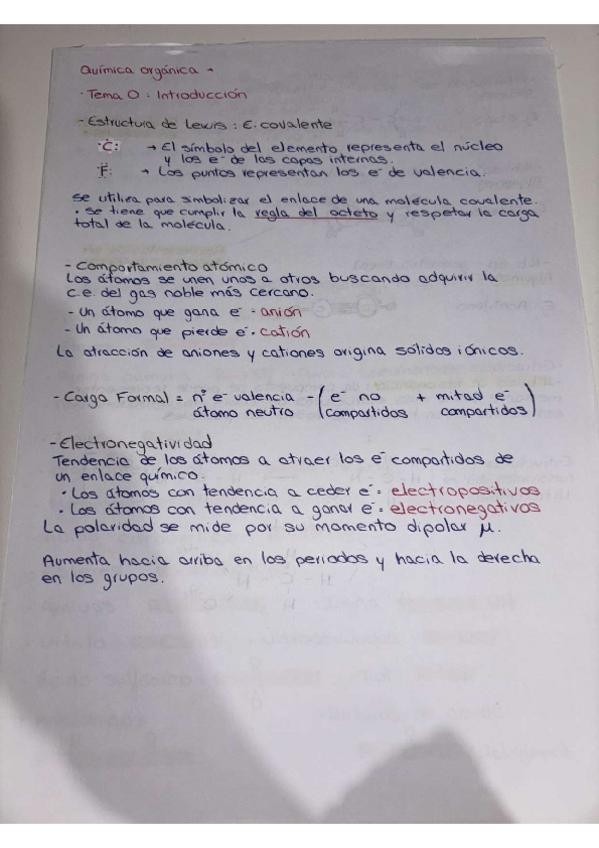 Química orgánica →
· Tema 0 : Introducción
- Estructura de Lewis : E. covalente
·C: → El símbolo del elemento representa el núcleo
y los e⁻ de las capas internas.
F: → Los puntos representan los e⁻ de valencia.
Se utiliza para simbolizar el enlace de una molécula covalente.
· Se tiene que cumplir la regla del octeto y respetar la carga
total de la molécula.
- Comportamiento atómico
Los átomos se unen unos a otros buscando adquirir la
c.e. del gas noble más cercano.
- Un átomo que gana e⁻ · anión
- Un átomo que pierde e⁻ · catión
La atracción de aniones y cationes origina sólidos iónicos.
- Carga Formal = nº e⁻ valencia - ( e⁻ no + mitad e⁻ )
átomo neutro compartidos compartidos
- Electronegatividad
Tendencia de los átomos a atraer los e⁻ compartidos de
un enlace químico.
· Los átomos con tendencia a ceder e⁻ · electropositivos
· Los átomos con tendencia a ganar e⁻ · electronegativos
La polaridad se mide por su momento dipolar μ.
Aumenta hacia arriba en los periodos y hacia la derecha
en los grupos.